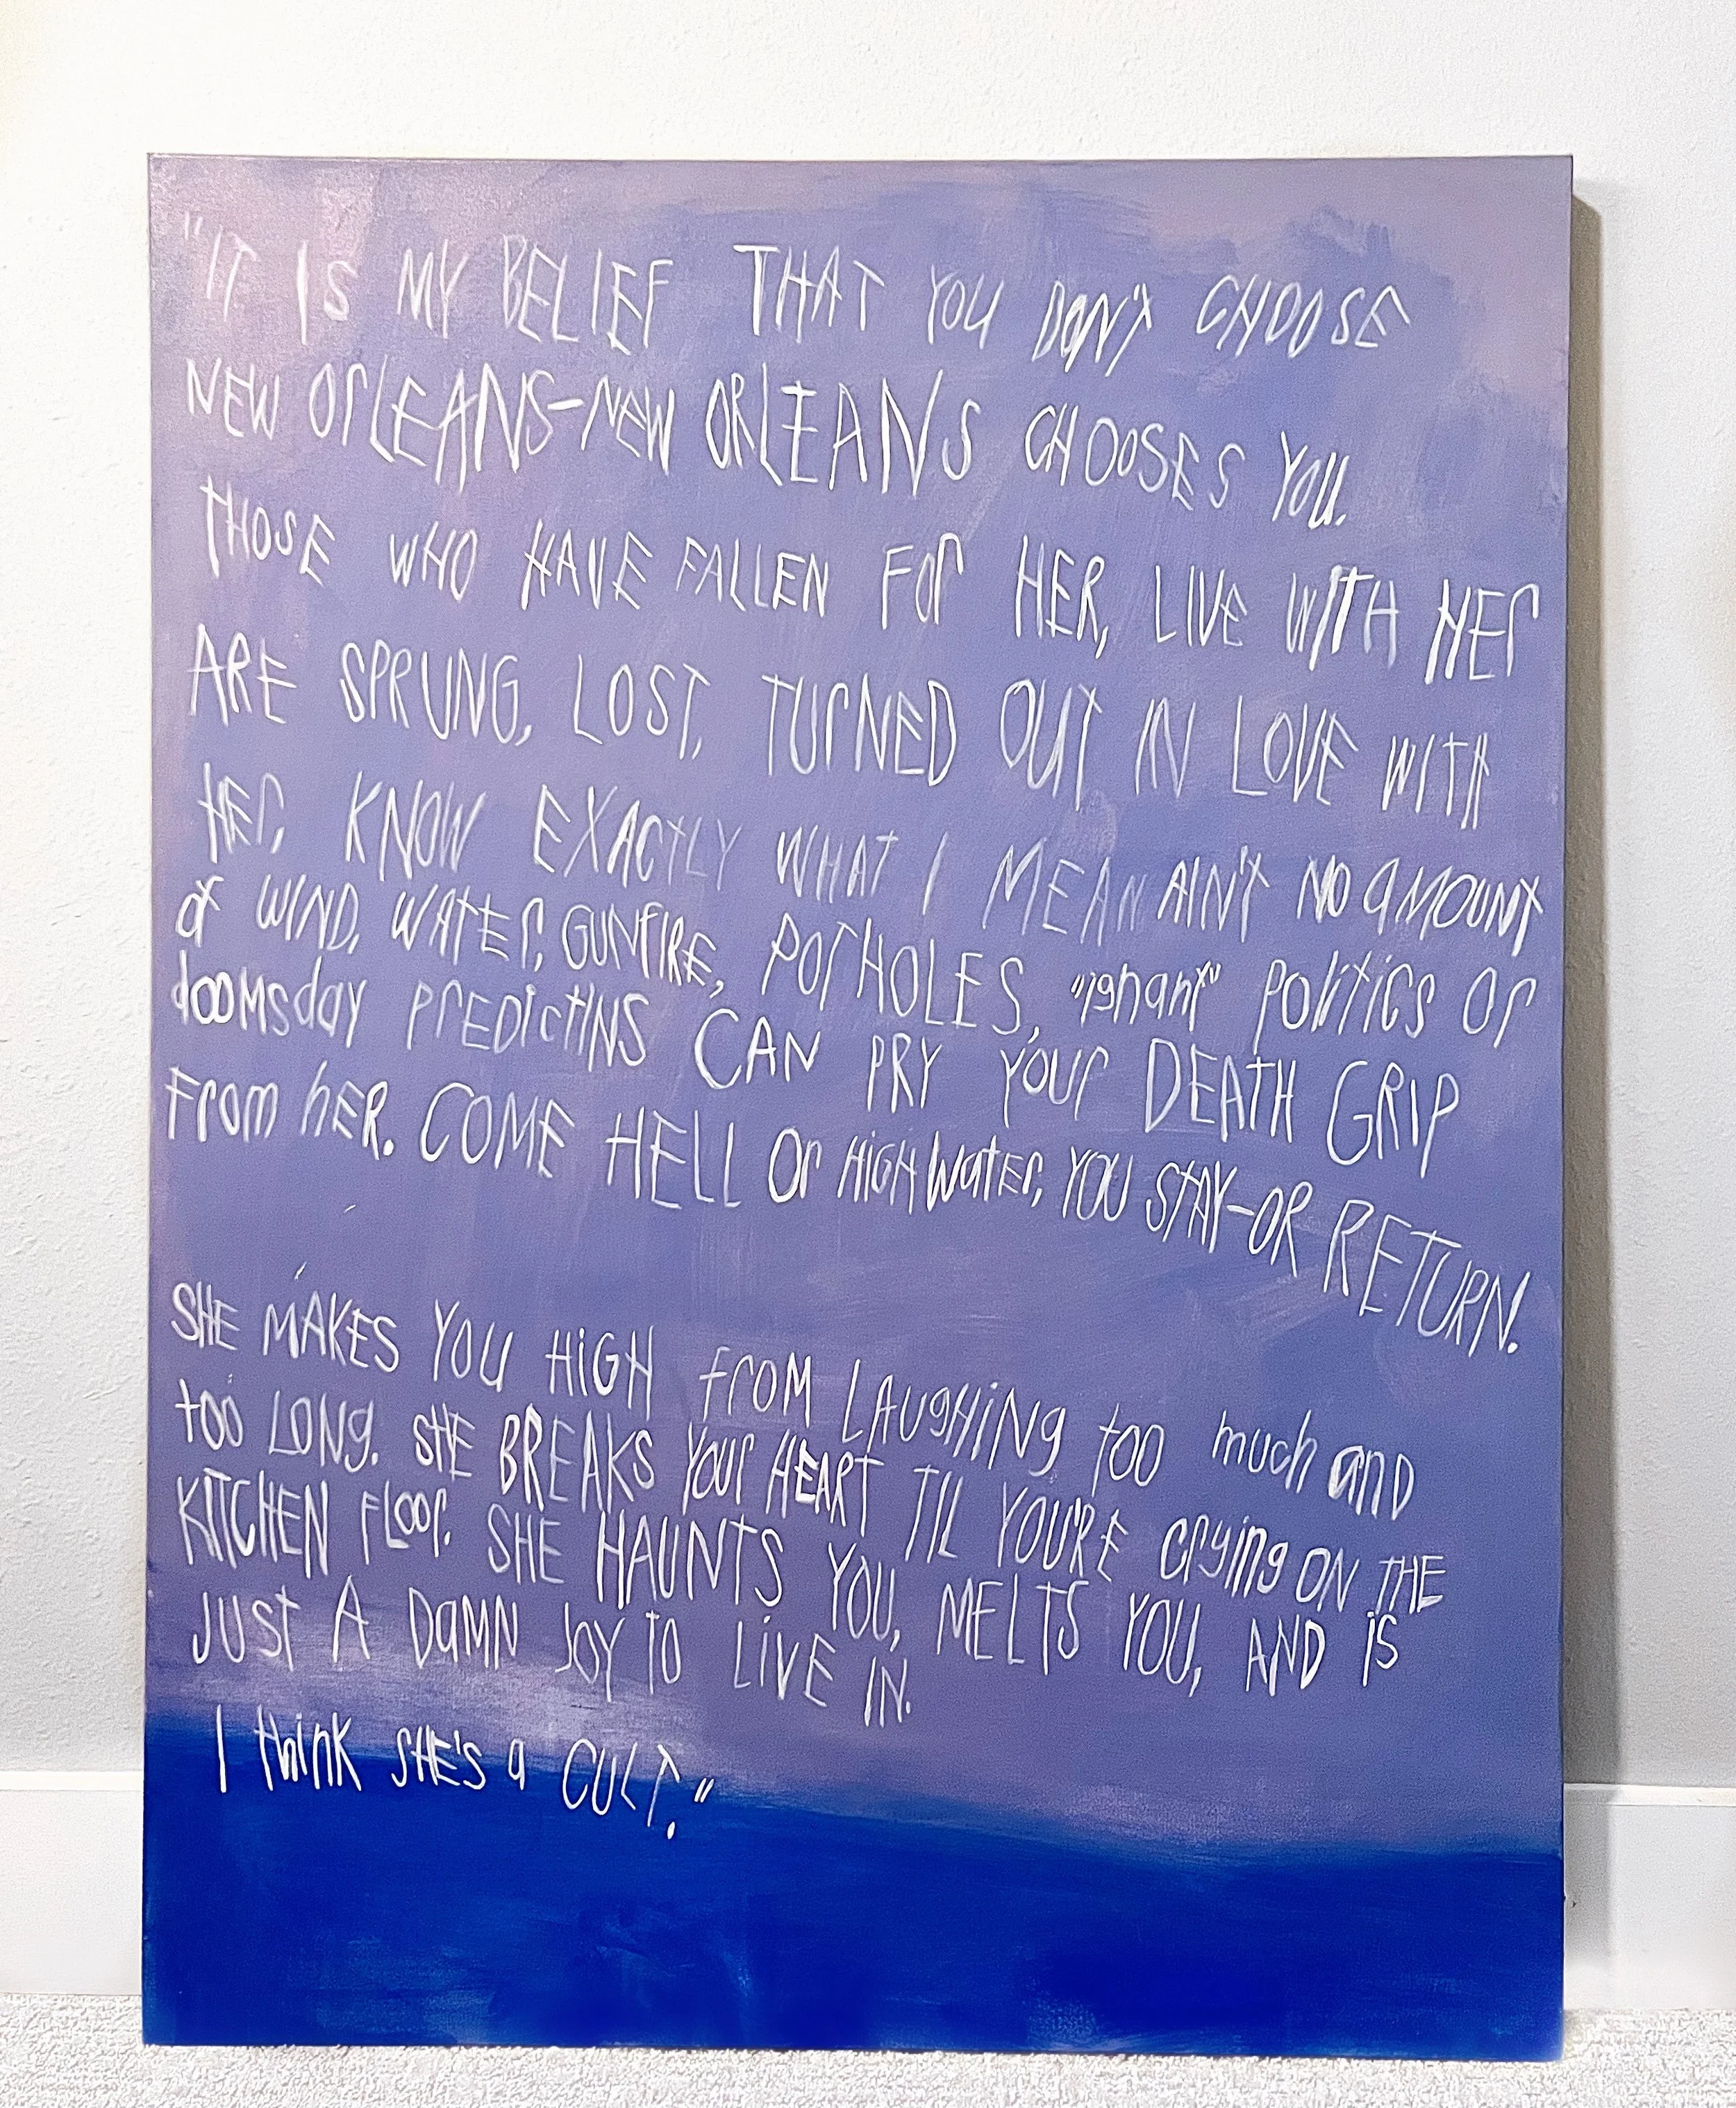 "IT IS MY BELIEF THAT YOU DON'T CHOOSE
NEW OrLEANS-NEW ORLEANS CHOOSES YOU.
THOSE WHO HAVE FALLEN FOr HER, LIVE WITH HEr
ARE SPRUNG, LOST, TUrNED OUT IN LOVE WITH
HEr, KNOW EXACTLY WHAT I MEAN AIN'T NO AMOUNT
of WIND, WATEr, GUNfIRE, POTHOLES, "ignant" POlitiCS Or
dooMsday PrEDIctINS CAN PRY YOUr DEATH GRIP
From hER. COME HELL Or HiGH WatEr, YOU STAY-OR RETURN.
SHE MAKES YOU HiGH frOM LAUgHiNg too much and
too LONg. SHE BREAKS YOUr HEART TIL YOU'RE Crying ON THE
KITCHEN FLoor. SHE HAUNTS YOU, MELTS YOU, AND iS
JUST A DaMN JOY TO LiVE IN.
I think SHE'S a CULT."